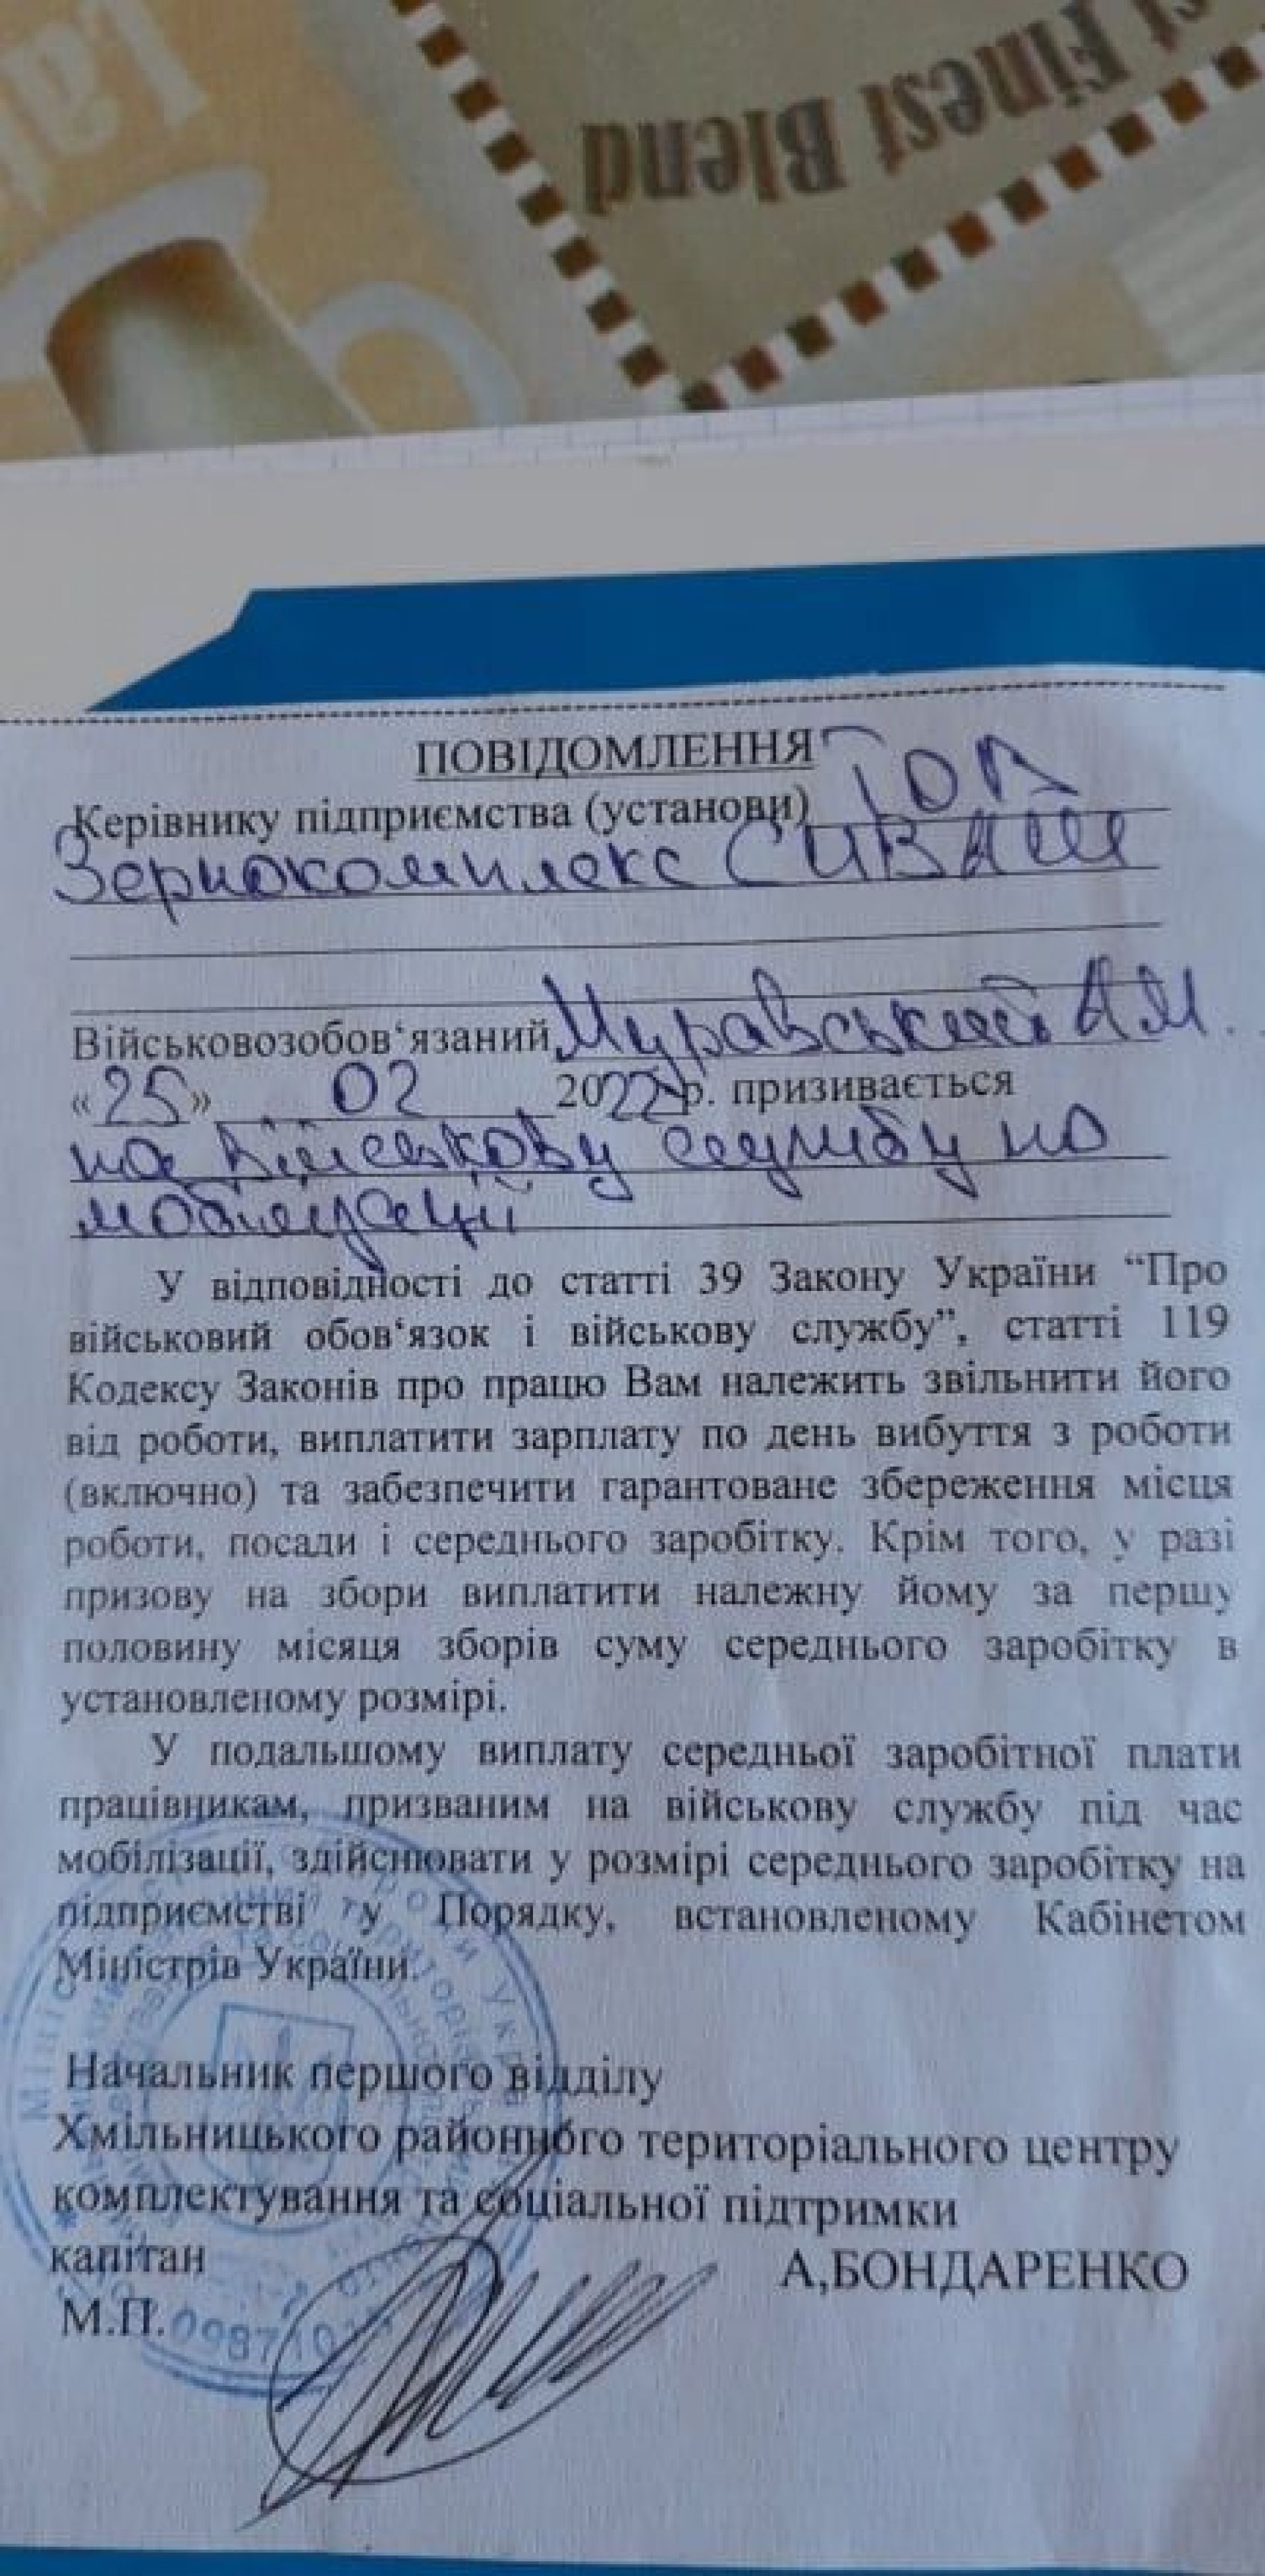 st Finest Blend
ПОВІДОМЛЕННЯ
Керівнику підприємства (установи) ТОВ
Зернокомплекс СИВАШ
Військовозобов‘язаний Муравський А М.
«25» 02 2022р. призивається
на військову службу по
мобілізації
У відповідності до статті 39 Закону України “Про
військовий обов‘язок і військову службу”, статті 119
Кодексу Законів про працю Вам належить звільнити його
від роботи, виплатити зарплату по день вибуття з роботи
(включно) та забезпечити гарантоване збереження місця
роботи, посади і середнього заробітку. Крім того, у разі
призову на збори виплатити належну йому за першу
половину місяця зборів суму середнього заробітку в
установленому розмірі.
У подальшому виплату середньої заробітної плати
працівникам, призваним на військову службу під час
мобілізації, здійснювати у розмірі середнього заробітку на
підприємстві у Порядку, встановленому Кабінетом
Міністрів України.
Начальник першого відділу
Хмільницького районного територіального центру
комплектування та соціальної підтримки
капітан А,БОНДАРЕНКО
М.П.